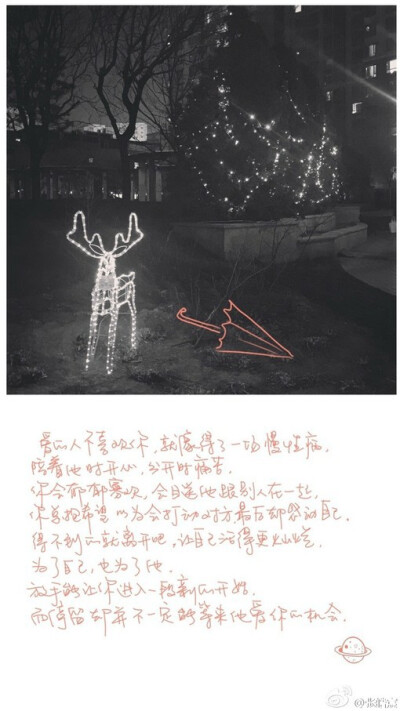 爱的人不喜欢你，就像得了一场慢性病，
陪着他时开心，分开时痛苦。
你会郁郁寡欢，会目送他跟别人在一起，
你总抱希望以为会打动对方，最后却感动自己。
得不到的就离开吧，让自己活得更灿烂些，
为了自己，也为了他。
放手能让你进入一段新的开始，
而停留却并不一定能等来他爱你的机会。